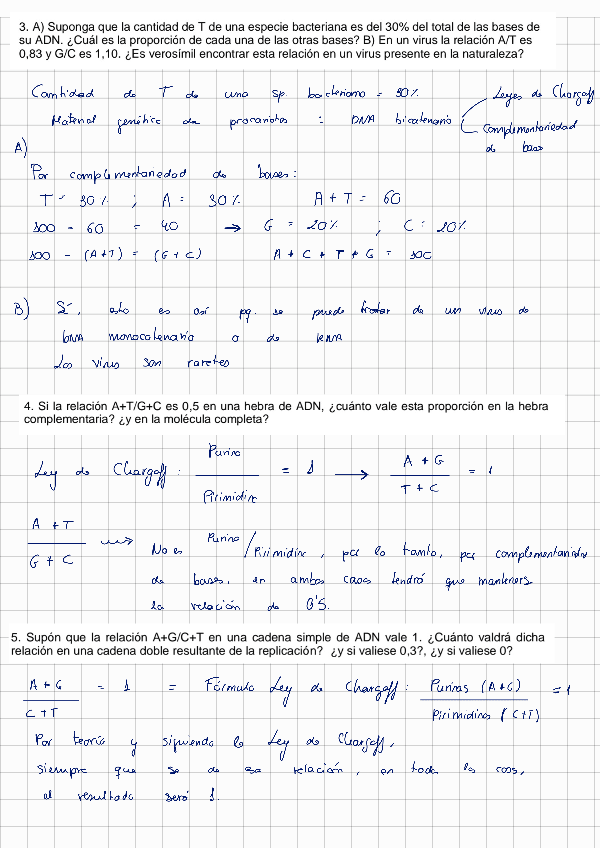 3. A) Suponga que la cantidad de T de una especie bacteriana es del 30% del total de las bases de
su ADN. ¿Cuál es la proporción de cada una de las otras bases? B) En un virus la relación A/T es
0,83 y G/C es 1,10. ¿Es verosímil encontrar esta relación en un virus presente en la naturaleza?
Cantidad de T de una sp. bacteriana = 30%
Leyes de Chargaff
Material genético de procariotas : DNA bicatenario
Complementariedad
de bases
A)
Por complementariedad de bases:
T = 30% ; A = 30% A + T = 60
100 - 60 = 40 → G = 20% ; C = 20%
100 - (A+T) = (G+C) A + C + T + G = 100
B) Sí, esto es así pq. se puede tratar de un virus de
DNA monocatenario o de RNA
Los virus son raretes
4. Si la relación A+T/G+C es 0,5 en una hebra de ADN, ¿cuánto vale esta proporción en la hebra
complementaria? ¿y en la molécula completa?
Ley de Chargaff : Purina / Pirimidina = 1 → A + G / T + C = 1
A + T
G + C
No es Purina / Pirimidina, por lo tanto, por complementariedad
de bases, en ambos casos tendrá que mantener
la relación de 0'5.
5. Supón que la relación A+G/C+T en una cadena simple de ADN vale 1. ¿Cuánto valdrá dicha
relación en una cadena doble resultante de la replicación? ¿y si valiese 0,3?, ¿y si valiese 0?
A + G / C + T = 1 = Fórmula Ley de Chargaff : Purinas (A+G) / Pirimidinas (C+T) = 1
Por teoría y siguiendo la Ley de Chargaff,
siempre que se de esa relación, en todos los casos,
el resultado será 1.